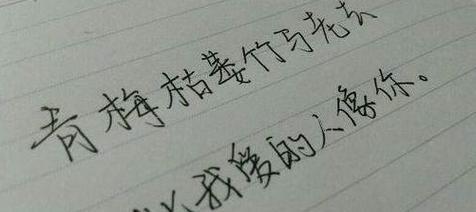 青梅枯萎竹马老去
我爱的人像你。